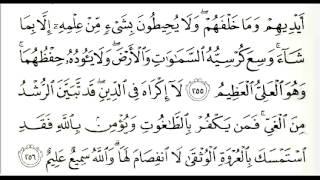 أَيْدِيهِمْ وَمَا خَلْفَهُمْ ۖ وَلَا يُحِيطُونَ بِشَيْءٍ مِّنْ عِلْمِهِ إِلَّا بِمَا
شَاءَ ۚ وَسِعَ كُرْسِيُّهُ السَّمَاوَاتِ وَالْأَرْضَ ۖ وَلَا يَئُودُهُ حِفْظُهُمَا ۚ
وَهُوَ الْعَلِيُّ الْعَظِيمُ ٢٥٥ لَا إِكْرَاهَ فِي الدِّينِ ۖ قَد تَّبَيَّنَ الرُّشْدُ
مِنَ الْغَيِّ ۚ فَمَن يَكْفُرْ بِالطَّاغُوتِ وَيُؤْمِن بِاللَّهِ فَقَدِ
اسْتَمْسَكَ بِالْعُرْوَةِ الْوُثْقَىٰ لَا انفِصَامَ لَهَا ۗ وَاللَّهُ سَمِيعٌ عَلِيمٌ ٢٥٦